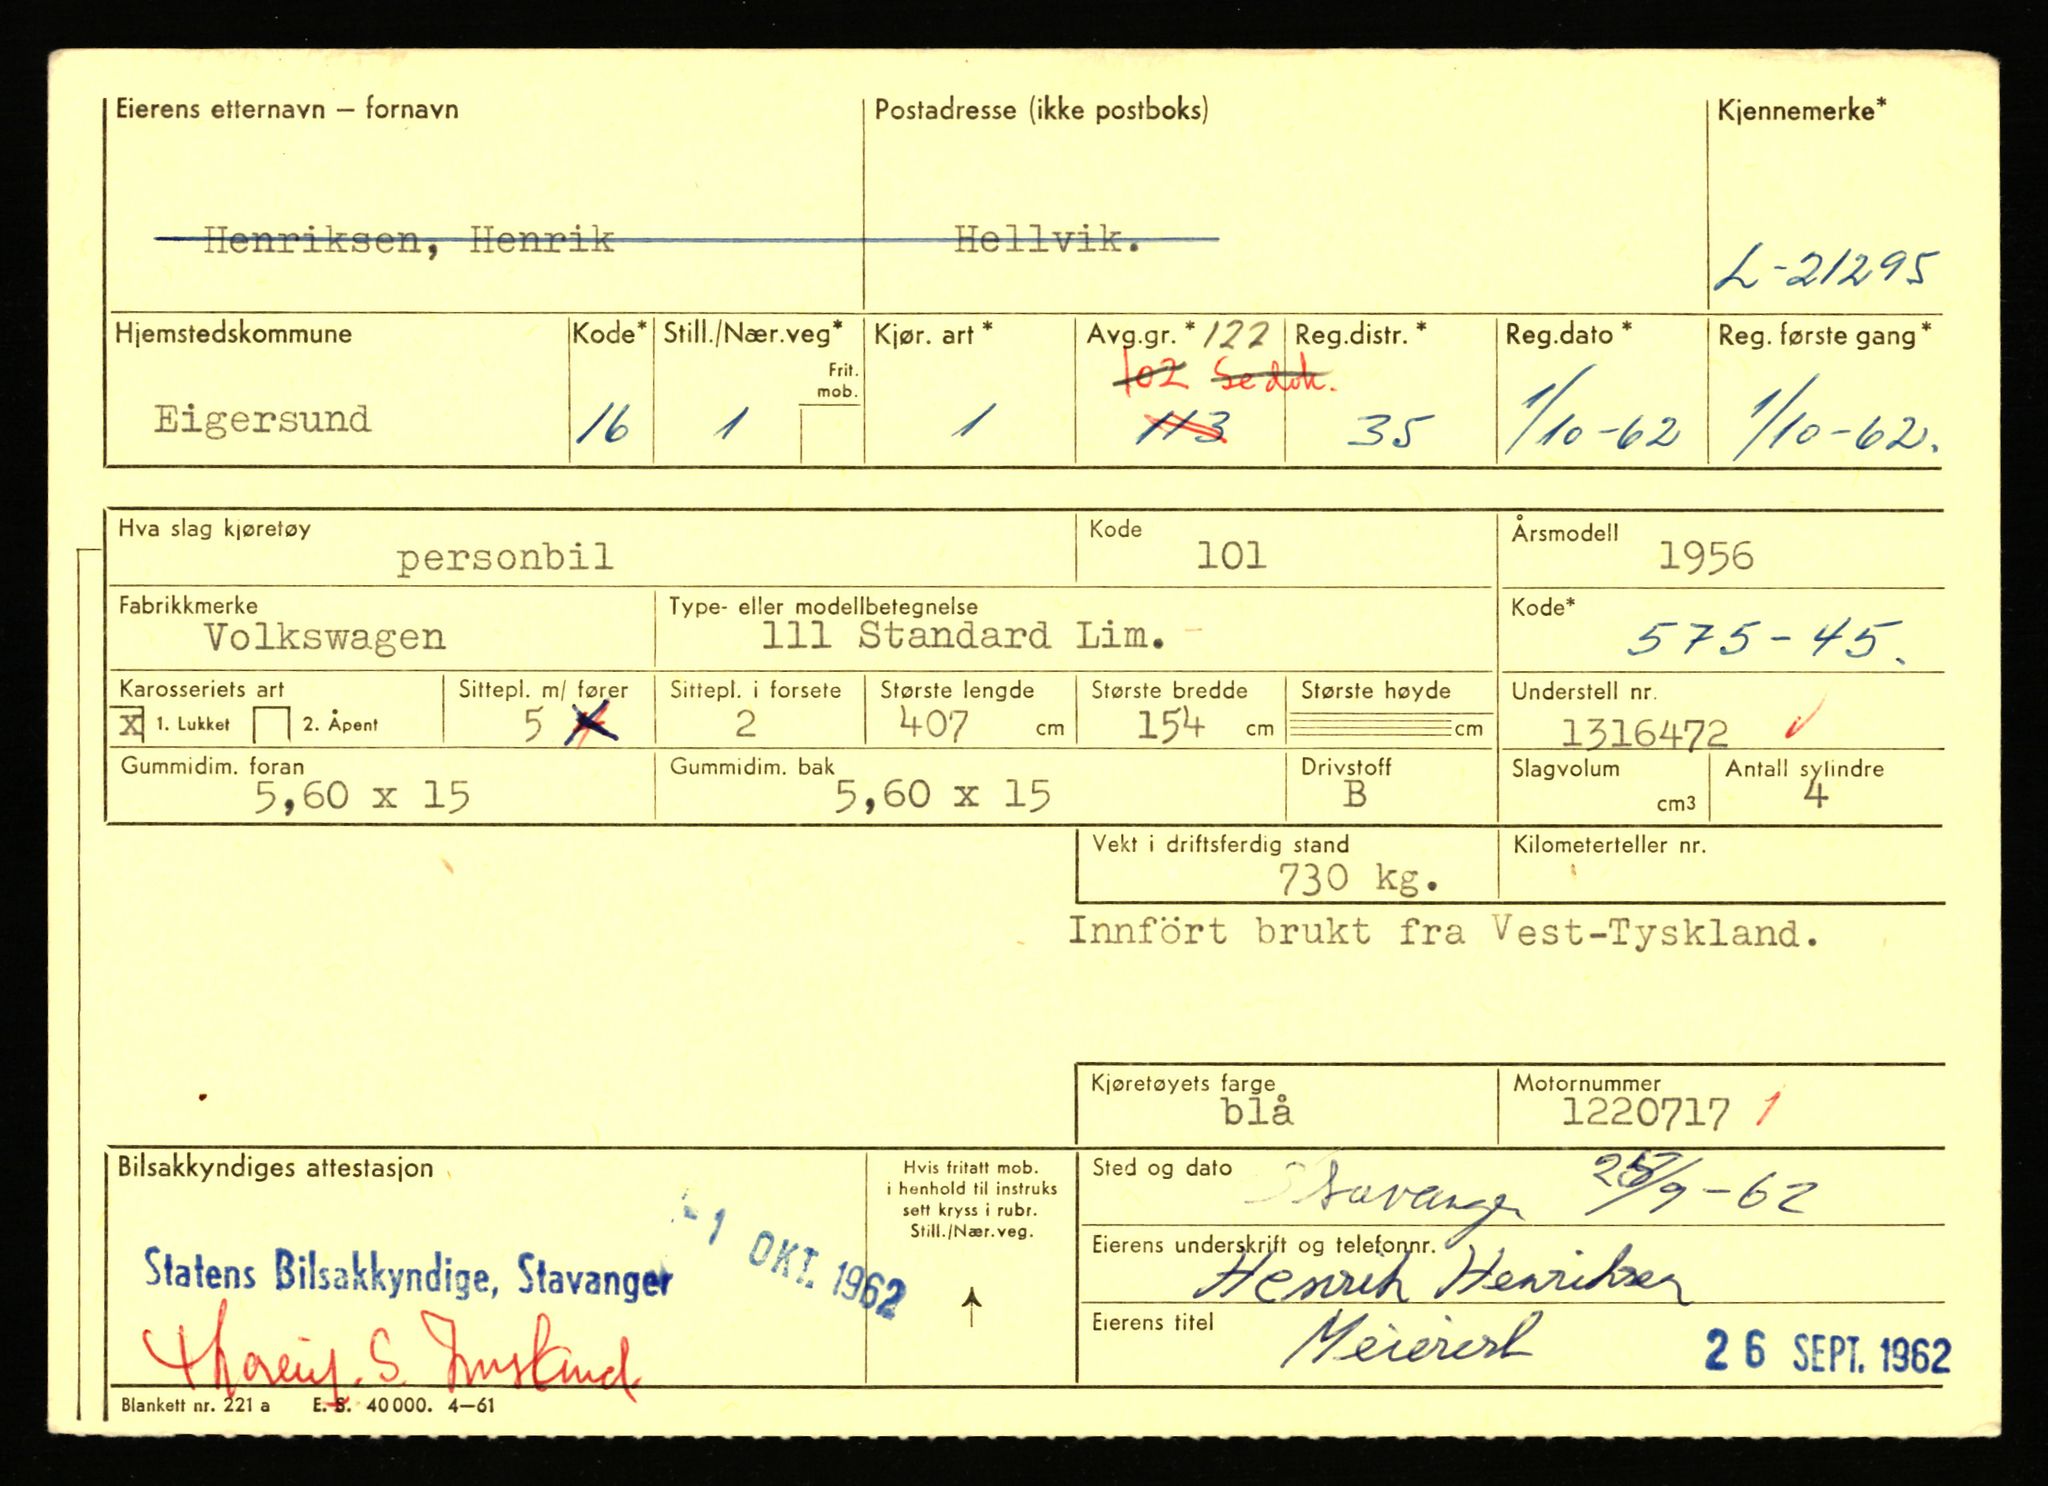 Eierens etternavn – fornavn Postadresse (ikke postboks) Kjennemerke*
Henriksen, Henrik Hellvik.
L-21295
Hjemstedskommune Kode* Still./Nær.veg* Kjør. art* Avg.gr.* 122 Reg.distr.* Reg.dato* Reg. første gang*
Frit. mob. 102 Se dok.
Eigersund 16 1 1 113 35 1/10-62 1/10-62.
Hva slag kjøretøy Kode Årsmodell
personbil 101 1956
Fabrikkmerke Type- eller modellbetegnelse Kode*
Volkswagen 111 Standard Lim. 575-45.
Karosseriets art Sittepl. m/ fører Sittepl. i forsete Største lengde Største bredde Største høyde Understell nr.
x 1. Lukket 2. Åpent 5 2 407 cm 154 cm cm 1316472
Gummidim. foran Gummidim. bak Drivstoff Slagvolum Antall sylindre
5,60 x 15 5,60 x 15 B cm3 4
Vekt i driftsferdig stand Kilometerteller nr.
730 kg.
Innfört brukt fra Vest-Tyskland.
Kjøretøyets farge Motornummer
blå 1220717
Bilsakkyndiges attestasjon
Hvis fritatt mob.
i henhold til instruks
sett kryss i rubr.
Still./Nær.veg.
Sted og dato Stavanger /9-62
- 1 OKT. 1962
Statens Bilsakkyndige, Stavanger
Eierens underskrift og telefonnr.
Henrik Henriksen
Eierens titel
26 SEPT. 1962
Blankett nr. 221 a E. S. 40 000. 4–61